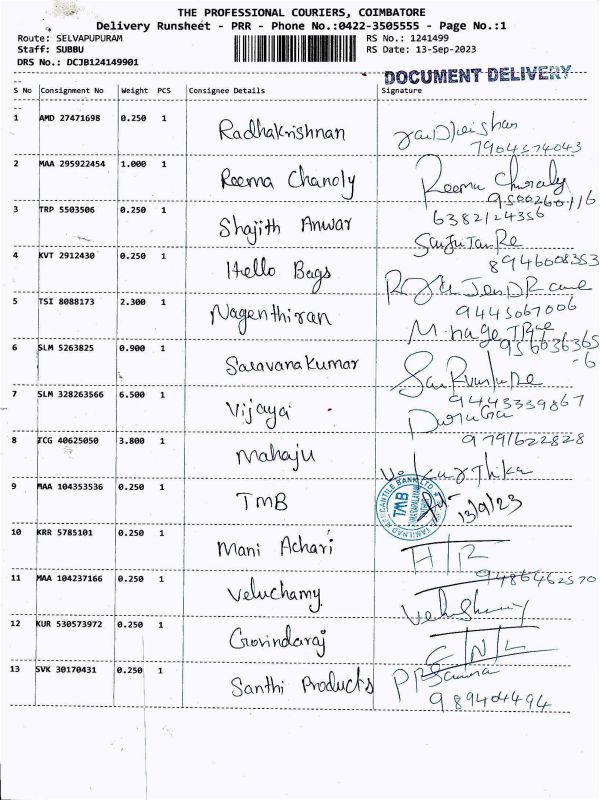 THE PROFESSIONAL COURIERS, COIMBATORE
Delivery Runsheet - PRR - Phone No.:0422-3505555 - Page No.:1
Route: SELVAPUPURAM RS No.: 1241499
Staff: SUBBU RS Date: 13-Sep-2023
DRS No.: DCJB124149901
DOCUMENT DELIVERY
S No Consignment No Weight PCS Consignee Details Signature
1 AMD 27471698 0.250 1 Radhakrishnan
7904574043
2 MAA 295922454 1.000 1 Reema Chanoly Reema
9500260116
3 TRP 5503506 0.250 1 Shajith Anwar 6382124356
4 KVT 2912430 0.250 1 Hello Bags 8946008353
5 TSI 8088173 2.300 1 Nagenthiran 9445067006
6 SLM 5263825 0.900 1 Saravanakumar
7 SLM 328263566 6.500 1 Vijaya 9443339867
8 TCG 40625050 3.800 1 Mahaju 9791622828
9 MAA 104353536 0.250 1 TMB TMB 13/9/23
10 KRR 5785101 0.250 1 Mani Achari H/R
9486462570
11 MAA 104237166 0.250 1 Veluchamy
12 KUR 530573972 0.250 1 Govindaraj
13 SVK 30170431 0.250 1 Santhi Products
989404494